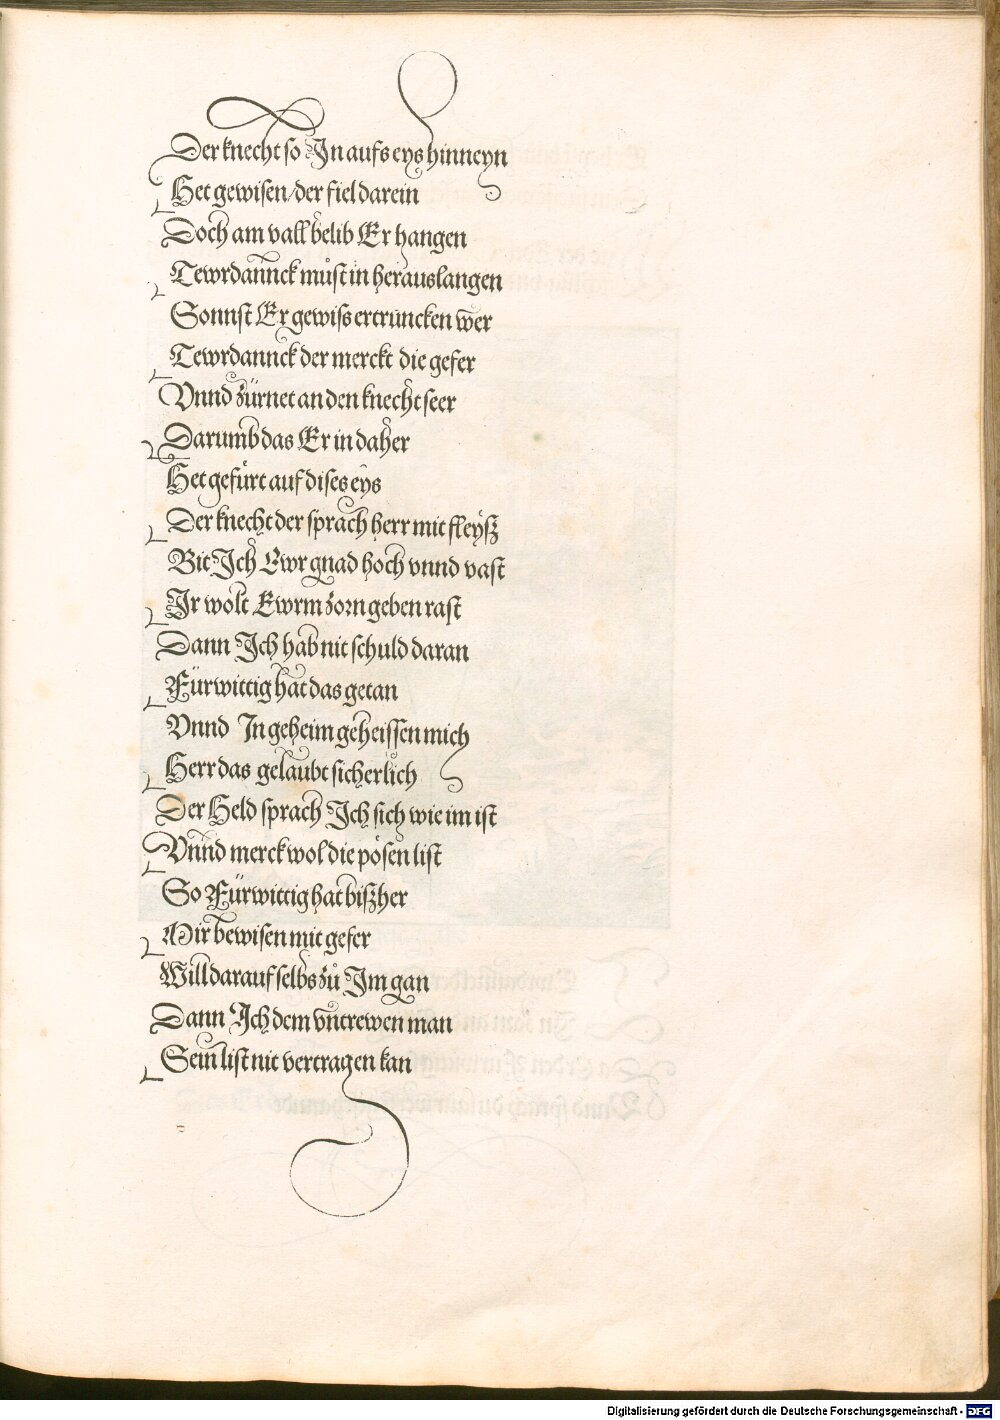 Der knecht so In aufs eys hinneyn
Het gewisen/der fiel darein
Doch am vall belib Er hangen
Tewrdannck můst in herauslangen
Sonnst Er gewiss ertruncken wer
Tewrdannck der merckt die gefer
Vnnd zürnet an den knecht seer
Darumb das Er in daher
Het gefürt auf dises eys
Der knecht der sprach herr mit fleysz
Bit Ich Ewr gnad hoch vnnd vast
Ir wolt Ewrm zorn geben rast
Dann Ich hab nit schuld daran
Fürwittig hat das getan
Vnnd In geheim geheissen mich
Herr das gelaubt sicherlich
Der Held sprach Ich sich wie im ist
Vnnd merck wol die pösen list
So Fürwittig hat biszher
Mir bewisen mit gefer
Will darauf selbs zů Im gan
Dann Ich dem vntrewen man
Sein list nit vertragen kan
Digitalisierung gefördert durch die Deutsche Forschungsgemeinschaft - DFG